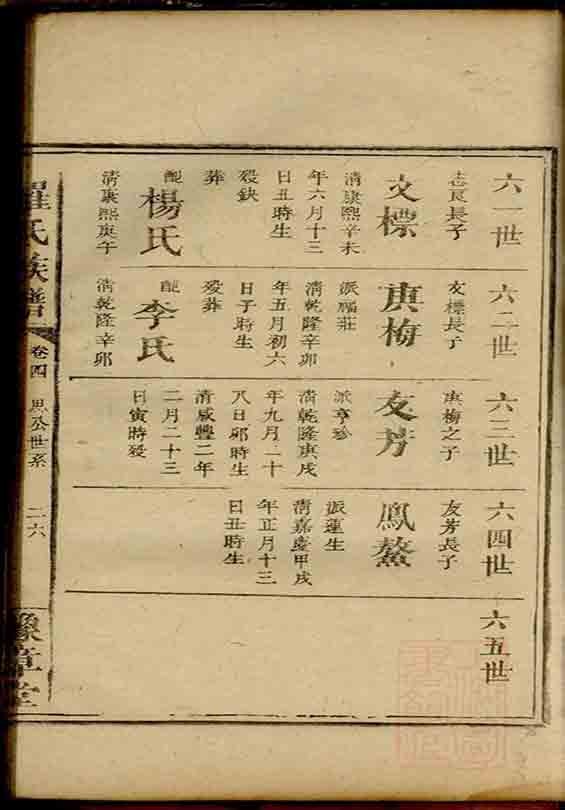 六一世
志良長子
文標
清康熙辛未
年六月十三
日丑時生
殁缺
葬
配楊氏
清康熙庚午
六二世
文標長子
庚梅
派福莊
清乾隆辛卯
年五月初六
日子時生
殁葬
配李氏
清乾隆辛卯
六三世
庚梅之子
友芳
派亨珍
清乾隆庚戌
年九月二十
八日卯時生
清咸豐二年
二月二十三
日寅時殁
六四世
友芳長子
鳳鰲
派運生
清嘉慶甲戌
年正月十三
日丑時生
六五世
羅氏族譜
卷四
思公世系
二六
豫章堂